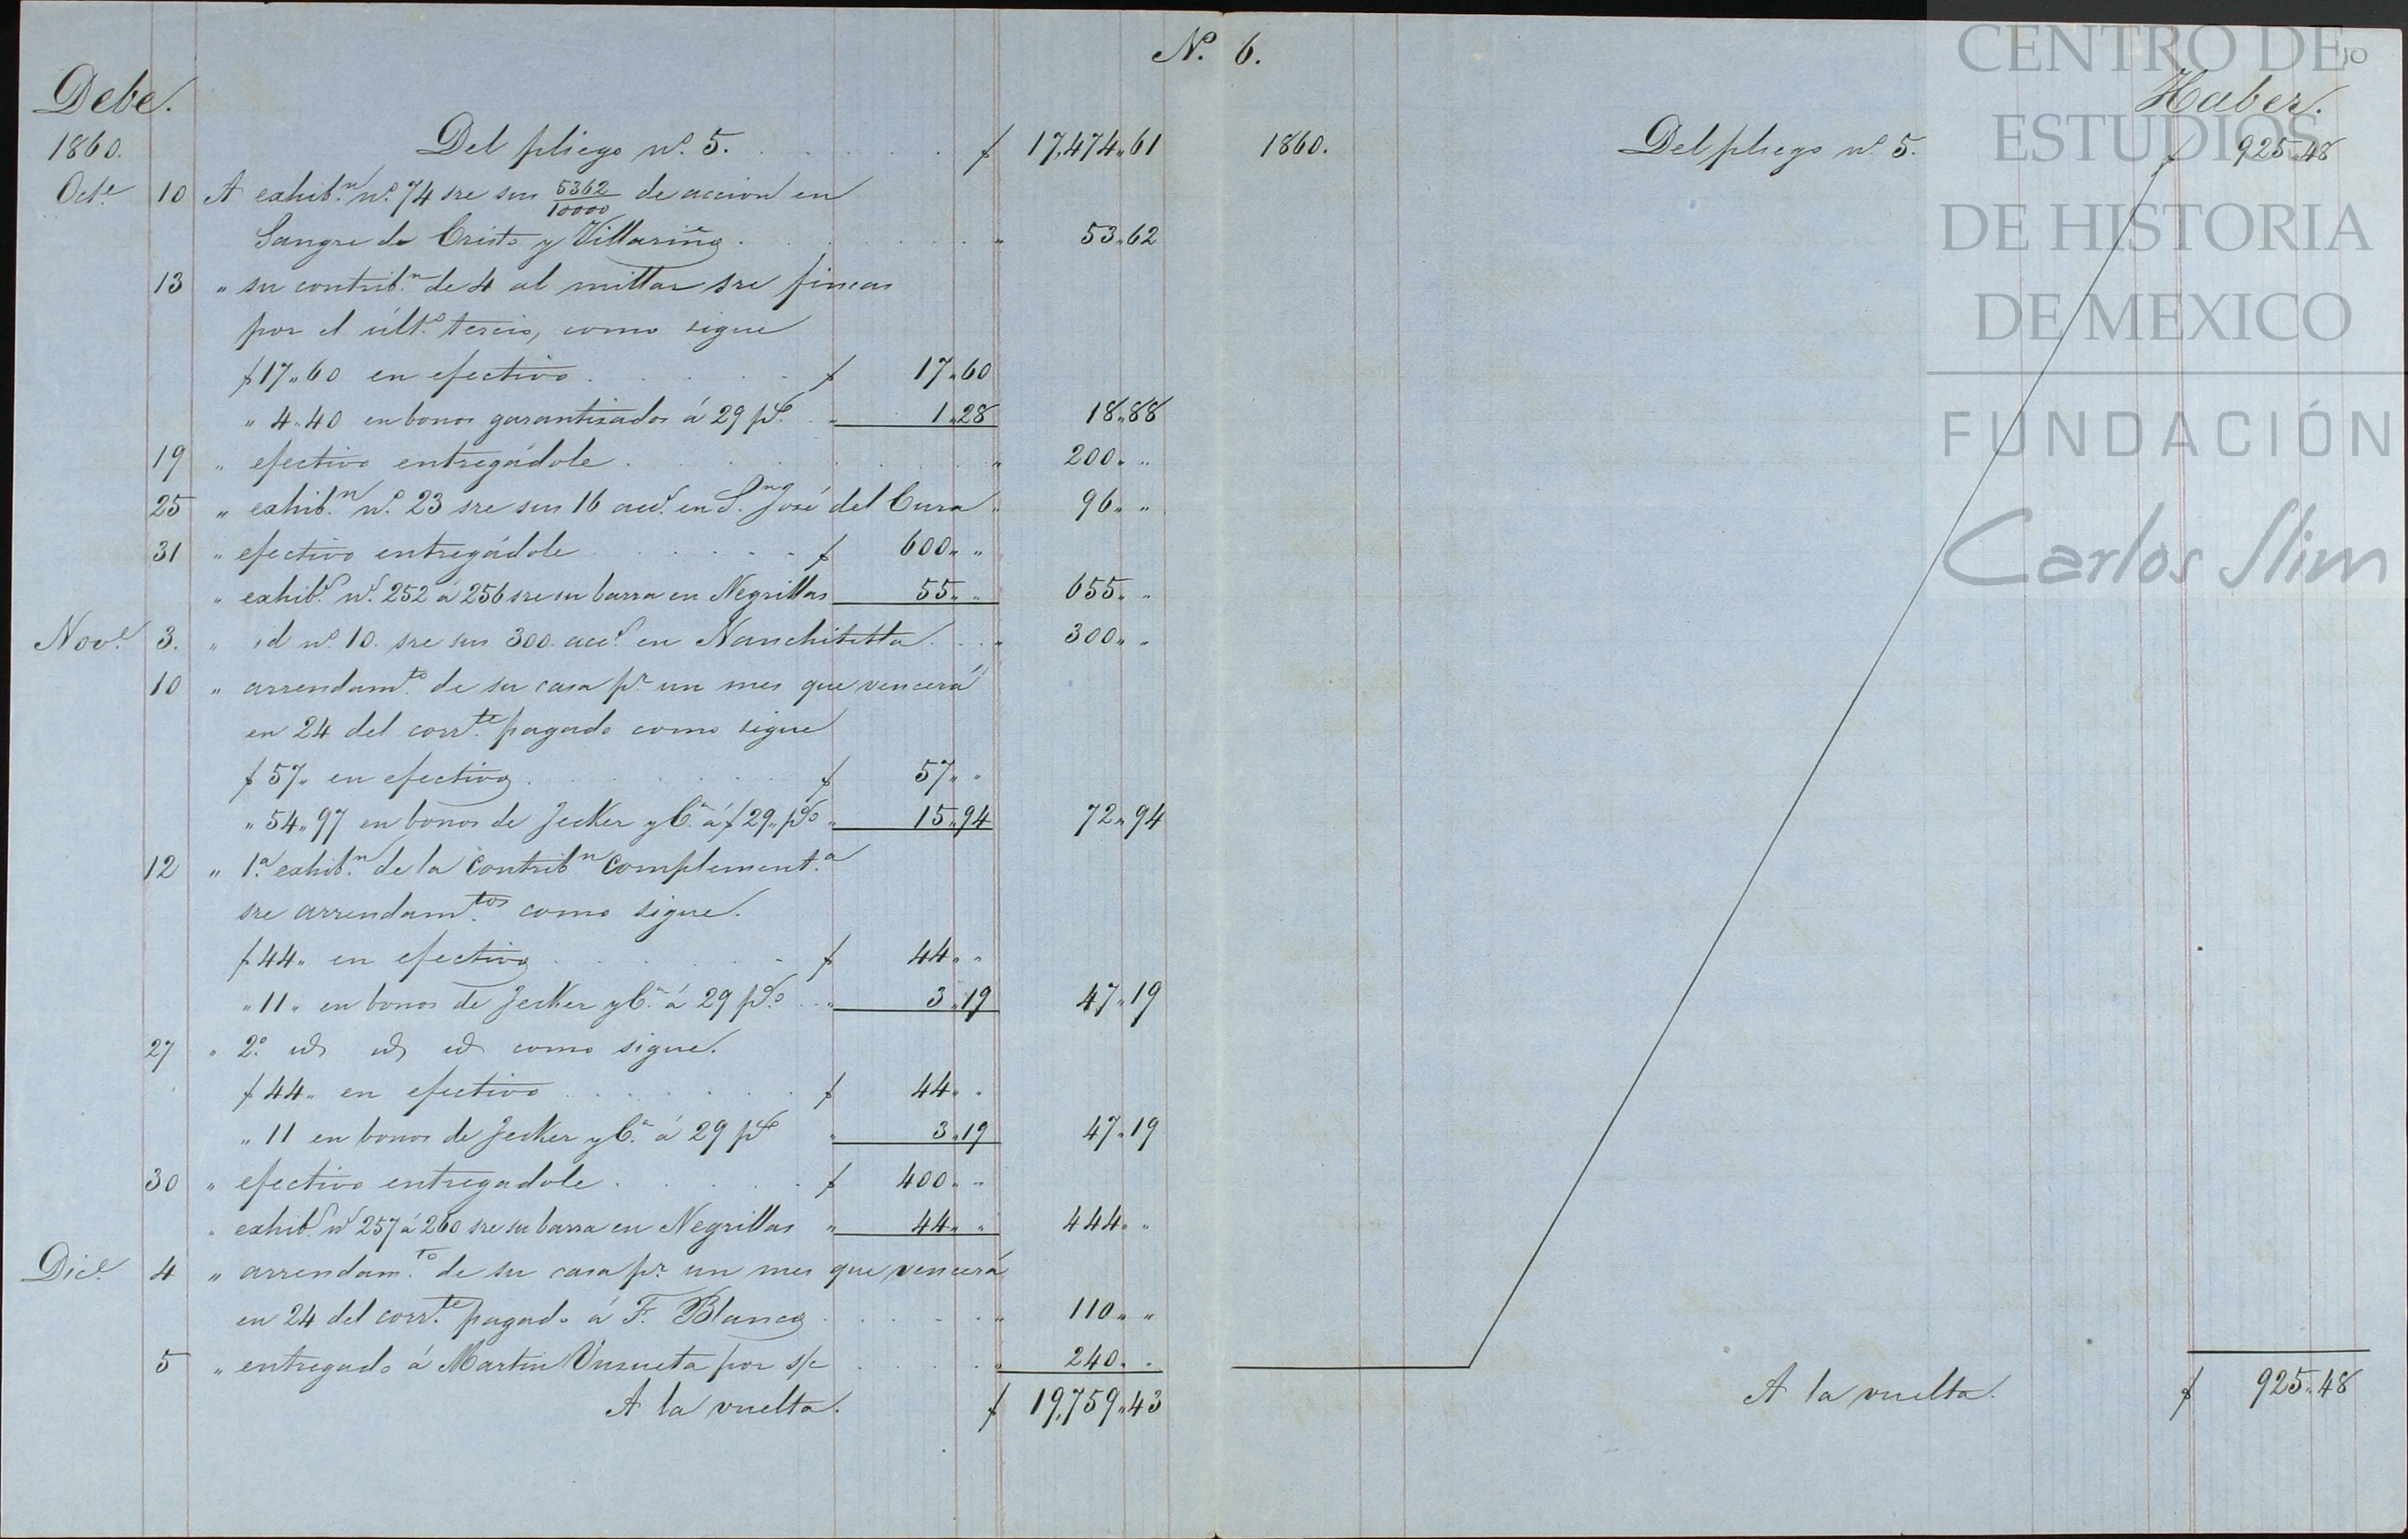 Nº 6.
10
Debe.
1860. Del pliego nº 5. $ 17,474„61
Octe 10 A exhibn nº 74 sre sus 5362/10000 de accion en
Sangre de Cristo y Villariño. „ 53„62
13 „ su contribn de 4 al millar sre fincas
por el últº tercio, como sigue
$17„60 en efectivo $ 17„60
„ 4„40 en bonos garantizados á 29 p% „ 1„28 18„88
19 „ efectivo entregádole „ 200„ „
25 „ exhibn nº 23 sre sus 16 accs en S. José del Cura „ 96„ „
31 „ efectivo entregádole $ 600„ „
„ exhibs ns 252 á 256 sre su barra en Negrillas 55„ „ 655„ „
Nove 3. „ id nº 10. sre sus 300 accs en Nanchititla „ 300„ „
10 „ arrendamto de su casa pr un mes que vencerá
en 24 del corrte pagado como sigue
$57„ en efectivo $ 57„ „
„ 54„97 en bonos de Jecker y Ca á $29„ p% „ 15„94 72„94
12 „ 1a exhibn de la contribn complementa
sre arrendamtos como sigue.
$44„ en efectivo $ 44„ „
„ 11„ en bonos de Jecker y Ca á 29 p% „ 3„19 47„19
27 „ 2º id id id como sigue.
$44„ en efectivo $ 44„ „
„ 11 en bonos de Jecker y Ca á 29 p% „ 3„19 47„19
30 „ efectivo entregadole $ 400„ „
„ exhibs ns 257 á 260 sre su barra en Negrillas „ 44„ „ 444„ „
Dice 4 „ arrendamto de su casa pr un mes que vencerá
en 24 del corrte pagado á F. Blanco „ 110„ „
5 „ entregado á Martin Unzueta por s/c „ 240„ „
A la vuelta. $ 19,759„43
Haber.
1860. Del pliego nº 5. $ 925„48
A la vuelta. $ 925„48
CENTRO DE
ESTUDIOS
DE HISTORIA
DE MEXICO
FUNDACIÓN
Carlos Slim